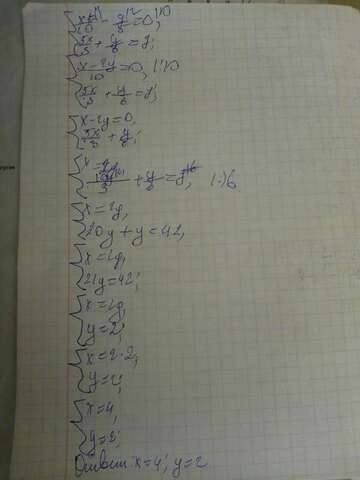 x/10 - y/5 = 0, |·10
5x/3 + y/6 = 7;
x-2y/10 = 0, |·10
5x/3 + y/6 = 7;
x-2y=0,
5x/3 + y/6;
x=2y,
10y/3 + y/6 = 7 |·6
x=2y,
20y+y=42,
x=2y,
21y=42;
x=2y,
y=2;
x=2·2;
y=2;
x=4,
y=2;
Ответ: x=4; y=2